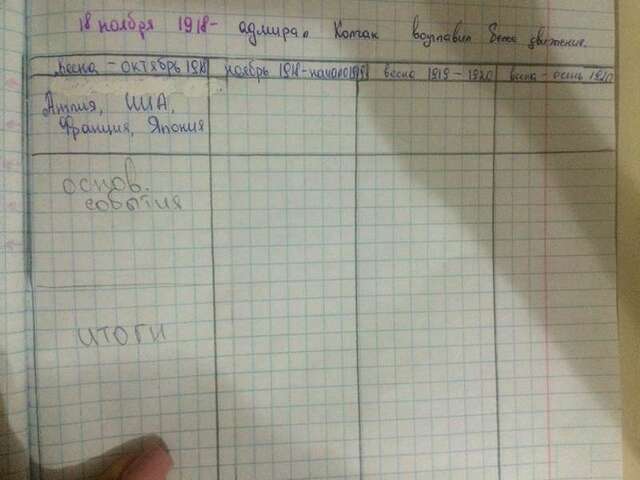 18 ноября 1918- адмирал Колчак возглавил Белое движение.
весна - октябрь 1918 ноябрь 1918-начало1919 весна 1919 - 1920 весна - осень 1920
Англия, США,
Франция, Япония
основ.
события
итоги